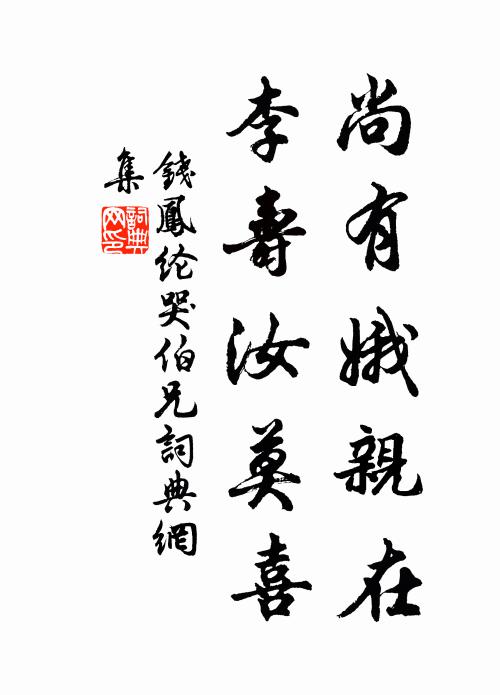 尚有娥親在
李壽汝莫喜
錢鳳纶哭伯兄詞典網
集
詞典
网印